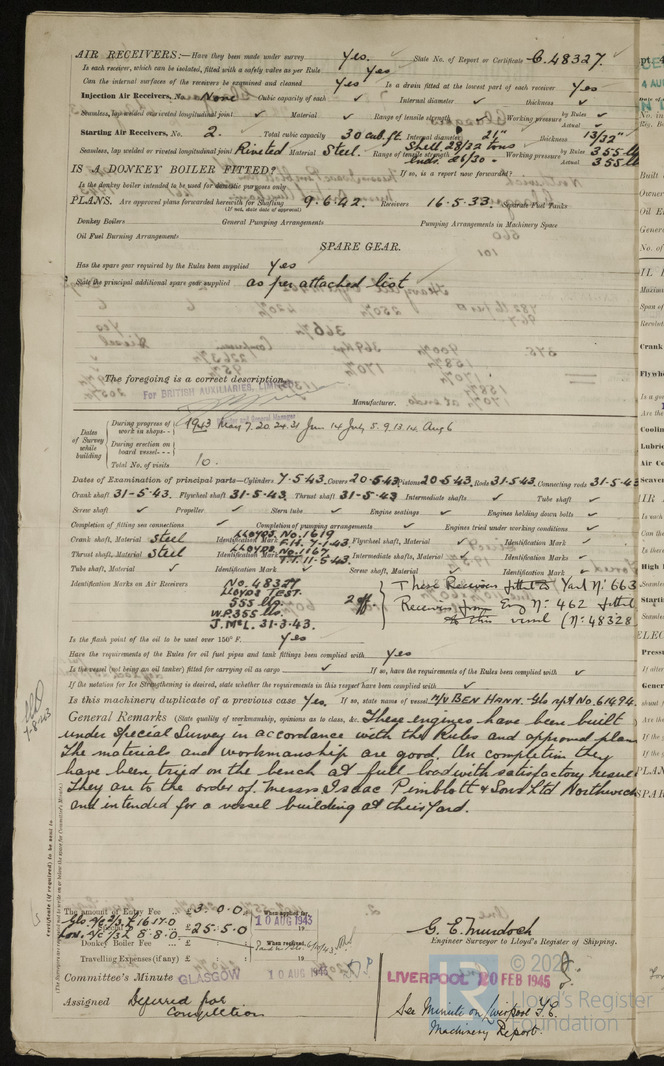 AIR RECEIVERS:—Have they been made under survey Yes. State No. of Report or Certificate C.48327.
Is each receiver, which can be isolated, fitted with a safety valve as per Rule Yes
Can the internal surfaces of the receivers be examined and cleaned Yes Is a drain fitted at the lowest part of each receiver Yes
Injection Air Receivers, No. None Cubic capacity of each ✓ Internal diameter ✓ thickness ✓
Seamless, lap welded or riveted longitudinal joint ✓ Material ✓ Range of tensile strength ✓ Working pressure by Rules ✓
Actual ✓
Starting Air Receivers, No. 2. Total cubic capacity 30 cub.ft. Internal diameter 21" thickness 13/32"
Seamless, lap welded or riveted longitudinal joint Riveted Material Steel. Range of tensile strength Shell 28/32 tons ends. 26/30 Working pressure by Rules 355 lb
Actual 355 lb
IS A DONKEY BOILER FITTED? If so, is a report now forwarded?
Is the donkey boiler intended to be used for domestic purposes only
PLANS. Are approved plans forwarded herewith for Shafting 9.6.42. Receivers 16.5.33. Separate Fuel Tanks
(If not, state date of approval)
Donkey Boilers General Pumping Arrangements Pumping Arrangements in Machinery Space
Oil Fuel Burning Arrangements
SPARE GEAR.
Has the spare gear required by the Rules been supplied Yes
State the principal additional spare gear supplied as per attached list
The foregoing is a correct description,
For BRITISH AUXILIARIES, LIMITED
Manufacturer.
Dates of Survey while building
During progress of work in shops-- 1943 May 7. 20. 24. 31 Jun 14 July 5. 9. 13 14 Aug 6
During erection on board vessel---
Total No. of visits 10.
Dates of Examination of principal parts—Cylinders 7.5.43. Covers 20.5.43 Pistons 20.5.43. Rods 31.5.43. Connecting rods 31.5.43
Crank shaft 31-5-43. Flywheel shaft 31.5.43. Thrust shaft 31.5.43 Intermediate shafts ✓ Tube shaft ✓
Screw shaft ✓ Propeller ✓ Stern tube ✓ Engine seatings ✓ Engines holding down bolts ✓
Completion of fitting sea connections ✓ Completion of pumping arrangements ✓ Engines tried under working conditions ✓
Crank shaft, Material Steel Identification Mark LLOYDS. No.1619 F.H. 7-1-43 Flywheel shaft, Material ✓ Identification Mark ✓
Thrust shaft, Material Steel Identification Mark LLOYDS No.1167 T.T. 11-5-43. Intermediate shafts, Material ✓ Identification Marks ✓
Tube shaft, Material ✓ Identification Mark ✓ Screw shaft, Material ✓ Identification Mark ✓
Identification Marks on Air Receivers No.48327
LLOYDS TEST.
555 lbs.
W.P.355 lbs.
J.McL. 31.3.43.
2 off.
These Receivers fitted to Yard No 663
Receivers from Eng No 462 fitted
to this vessel (No 48328
Is the flash point of the oil to be used over 150° F. Yes
Have the requirements of the Rules for oil fuel pipes and tank fittings been complied with Yes
Is the vessel (not being an oil tanker) fitted for carrying oil as cargo ✓ If so, have the requirements of the Rules been complied with ✓
If the notation for Ice Strengthening is desired, state whether the requirements in this respect have been complied with ✓
Is this machinery duplicate of a previous case Yes. If so, state name of vessel M/V BEN HANN. Gls rpt No. 61494.
General Remarks (State quality of workmanship, opinions as to class, &c. These engines have been built
under special survey in accordance with the Rules and approved plans
The materials and workmanship are good. On completion they
have been tried on the bench at full load with satisfactory result
They are to the order of Messrs Isaac Pimblott & Sons Ltd Northwich
and intended for a vessel building at their yard.
Certificate (if required) to be sent to
(The Surveyors are requested not to write on or below the space for Committee's Minute.)
The amount of Entry Fee .. £3.0.0. When applied for
Gls. A/c 2/3 £16.17.0
Special £25.5.0 10 AUG 1943
Lon. A/c 1/3 £ 8.8.0
Donkey Boiler Fee ... £ When received,
Travelling Expenses (if any) £ 19
G. E. Murdoch
Engineer Surveyor to Lloyd's Register of Shipping.
Committee's Minute GLASGOW 10 AUG 1943
Assigned Deferred for
Completion
LIVERPOOL 20 FEB 1945
See Minute on Liverpool F.E.
Machinery Report.
Lloyd's Register
Foundation